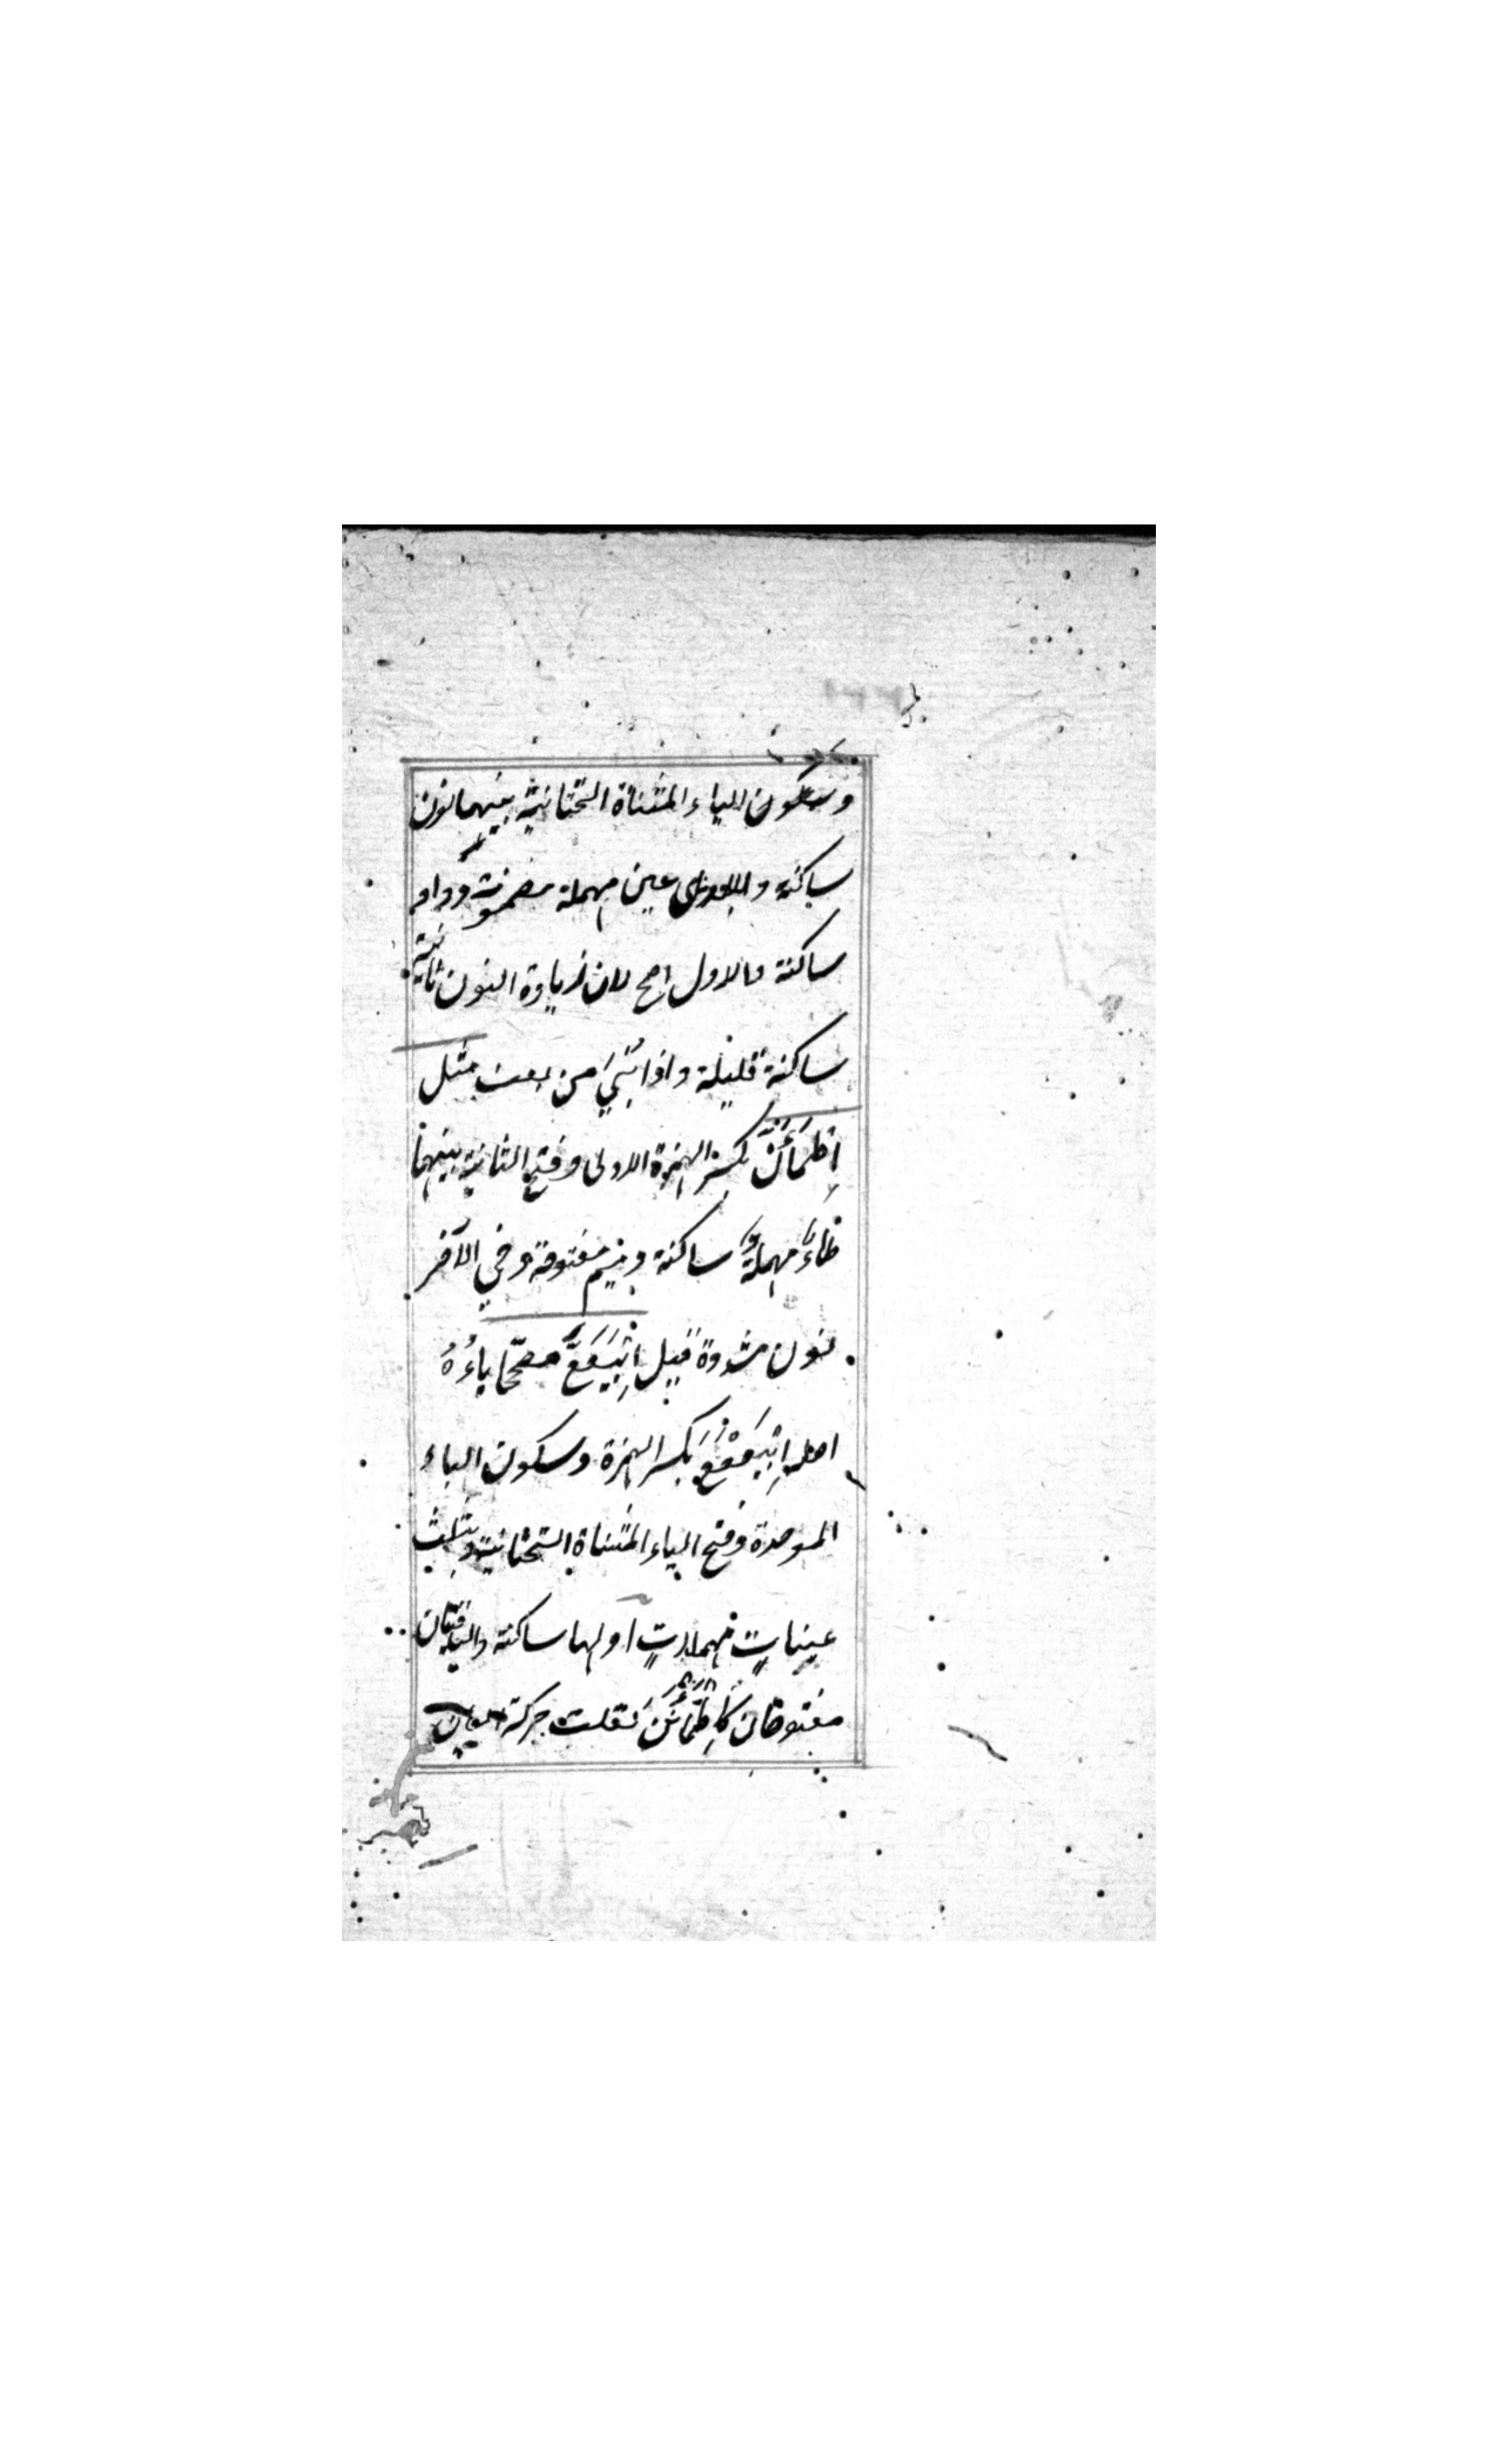 وسكون الياء المثناة التحتانية بينهما نون
ساكنة و عين مهملة مضمومة وواو
ساكنة والاول اصح لان زيادة النون ثانية
ساكنة قليلة واذا بُنِيَ من بعت مثل
اِطْمَأَنَّ بكسر الهمزة الاولى وفتح الثانية بينهما
طاء مهملة ساكنة وميم مفتوحة وفي الآخر
نون مشددة قيل اِبْيَعَعَّ مصححا ياءُهُ
اصله اِبْيَعْعَعَ بكسر الهمزة وسكون الباء
الموحدة وفتح الياء المثناة التحتانية وبثلث
عيناتٍ مهملاتٍ اولها ساكنة والباقيتان
مفتوحتان كاِطْمَأْنَنَ نقلت حركة العين